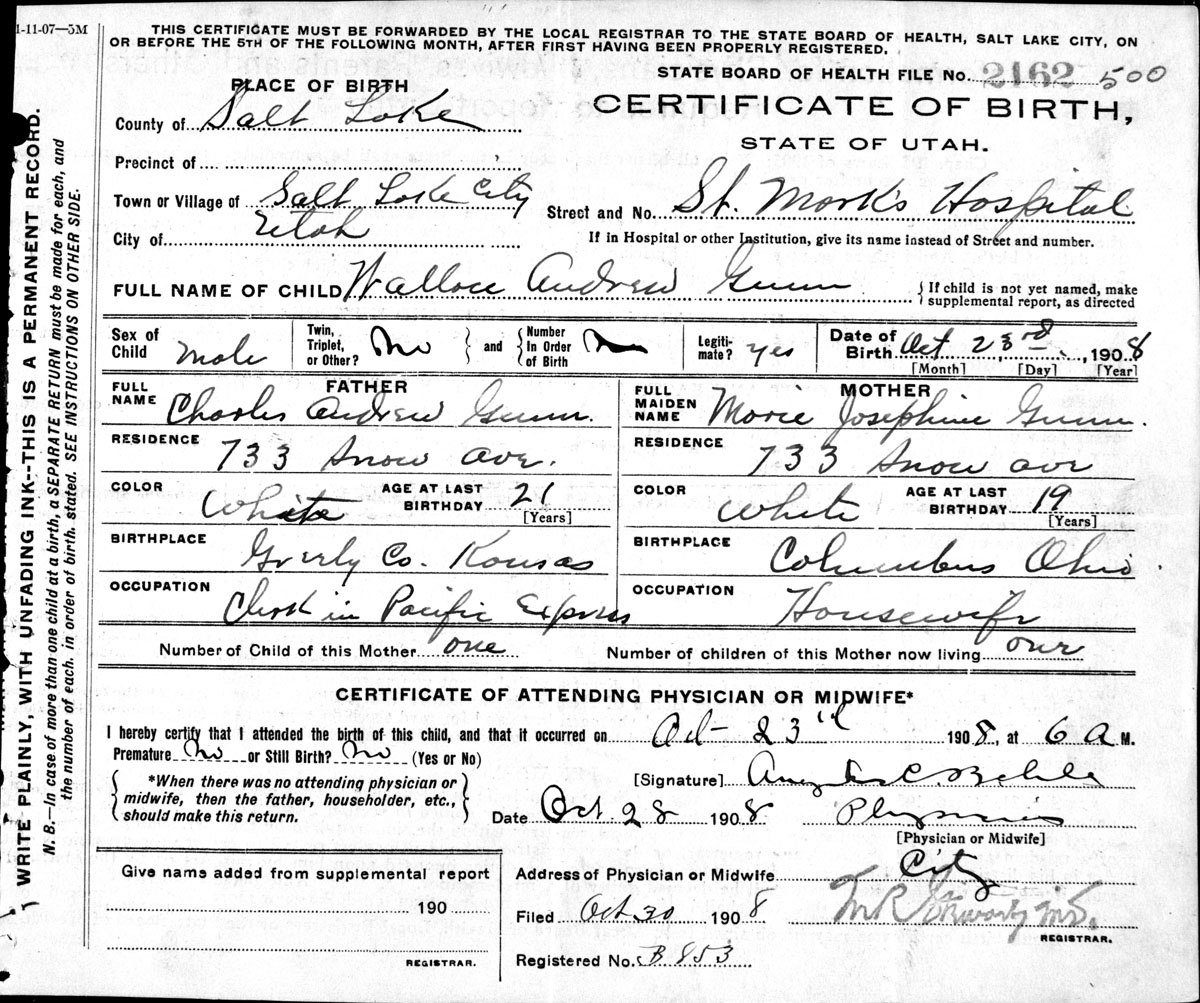 1-11-07—5M
THIS CERTIFICATE MUST BE FORWARDED BY THE LOCAL REGISTRAR TO THE STATE BOARD OF HEALTH, SALT LAKE CITY, ON
OR BEFORE THE 5TH OF THE FOLLOWING MONTH, AFTER FIRST HAVING BEEN PROPERLY REGISTERED.
STATE BOARD OF HEALTH FILE No. 2162 500
PLACE OF BIRTH
CERTIFICATE OF BIRTH,
STATE OF UTAH.
County of Salt Lake
Precinct of
Town or Village of Salt Lake City
Street and No. St. Mark's Hospital
City of Utah
If in Hospital or other Institution, give its name instead of Street and number.
FULL NAME OF CHILD Wallace Andrew Gunn
{ If child is not yet named, make
supplemental report, as directed
Sex of Child Male
Twin, Triplet, or Other? No } and { Number In Order of Birth
Legitimate? Yes
Date of Birth Oct 23rd, 1908
[Month] [Day] [Year]
FATHER
FULL NAME Charles Andrew Gunn.
RESIDENCE 733 Snow ave.
COLOR White AGE AT LAST BIRTHDAY 21
[Years]
BIRTHPLACE Co. Kansas
OCCUPATION Clerk in Pacific Express
MOTHER
FULL MAIDEN NAME Marie Josephine Gunn.
RESIDENCE 733 Snow ave
COLOR White AGE AT LAST BIRTHDAY 19
[Years]
BIRTHPLACE Columbus Ohio
OCCUPATION Housewife
Number of Child of this Mother one Number of children of this Mother now living one
CERTIFICATE OF ATTENDING PHYSICIAN OR MIDWIFE*
I hereby certify that I attended the birth of this child, and that it occurred on Oct 23rd 1908, at 6 A M.
Premature No or Still Birth? No (Yes or No)
{ *When there was no attending physician or
midwife, then the father, householder, etc.,
should make this return. }
[Signature]
Date Oct. 28 1908 Physician
[Physician or Midwife]
Give name added from supplemental report
190
REGISTRAR.
Address of Physician or Midwife City
Filed Oct 30 1908
REGISTRAR.
Registered No. B 853
WRITE PLAINLY, WITH UNFADING INK--THIS IS A PERMANENT RECORD.
N. B.—In case of more than one child at a birth, a SEPARATE RETURN must be made for each, and
the number of each, in order of birth, stated. SEE INSTRUCTIONS ON OTHER SIDE.